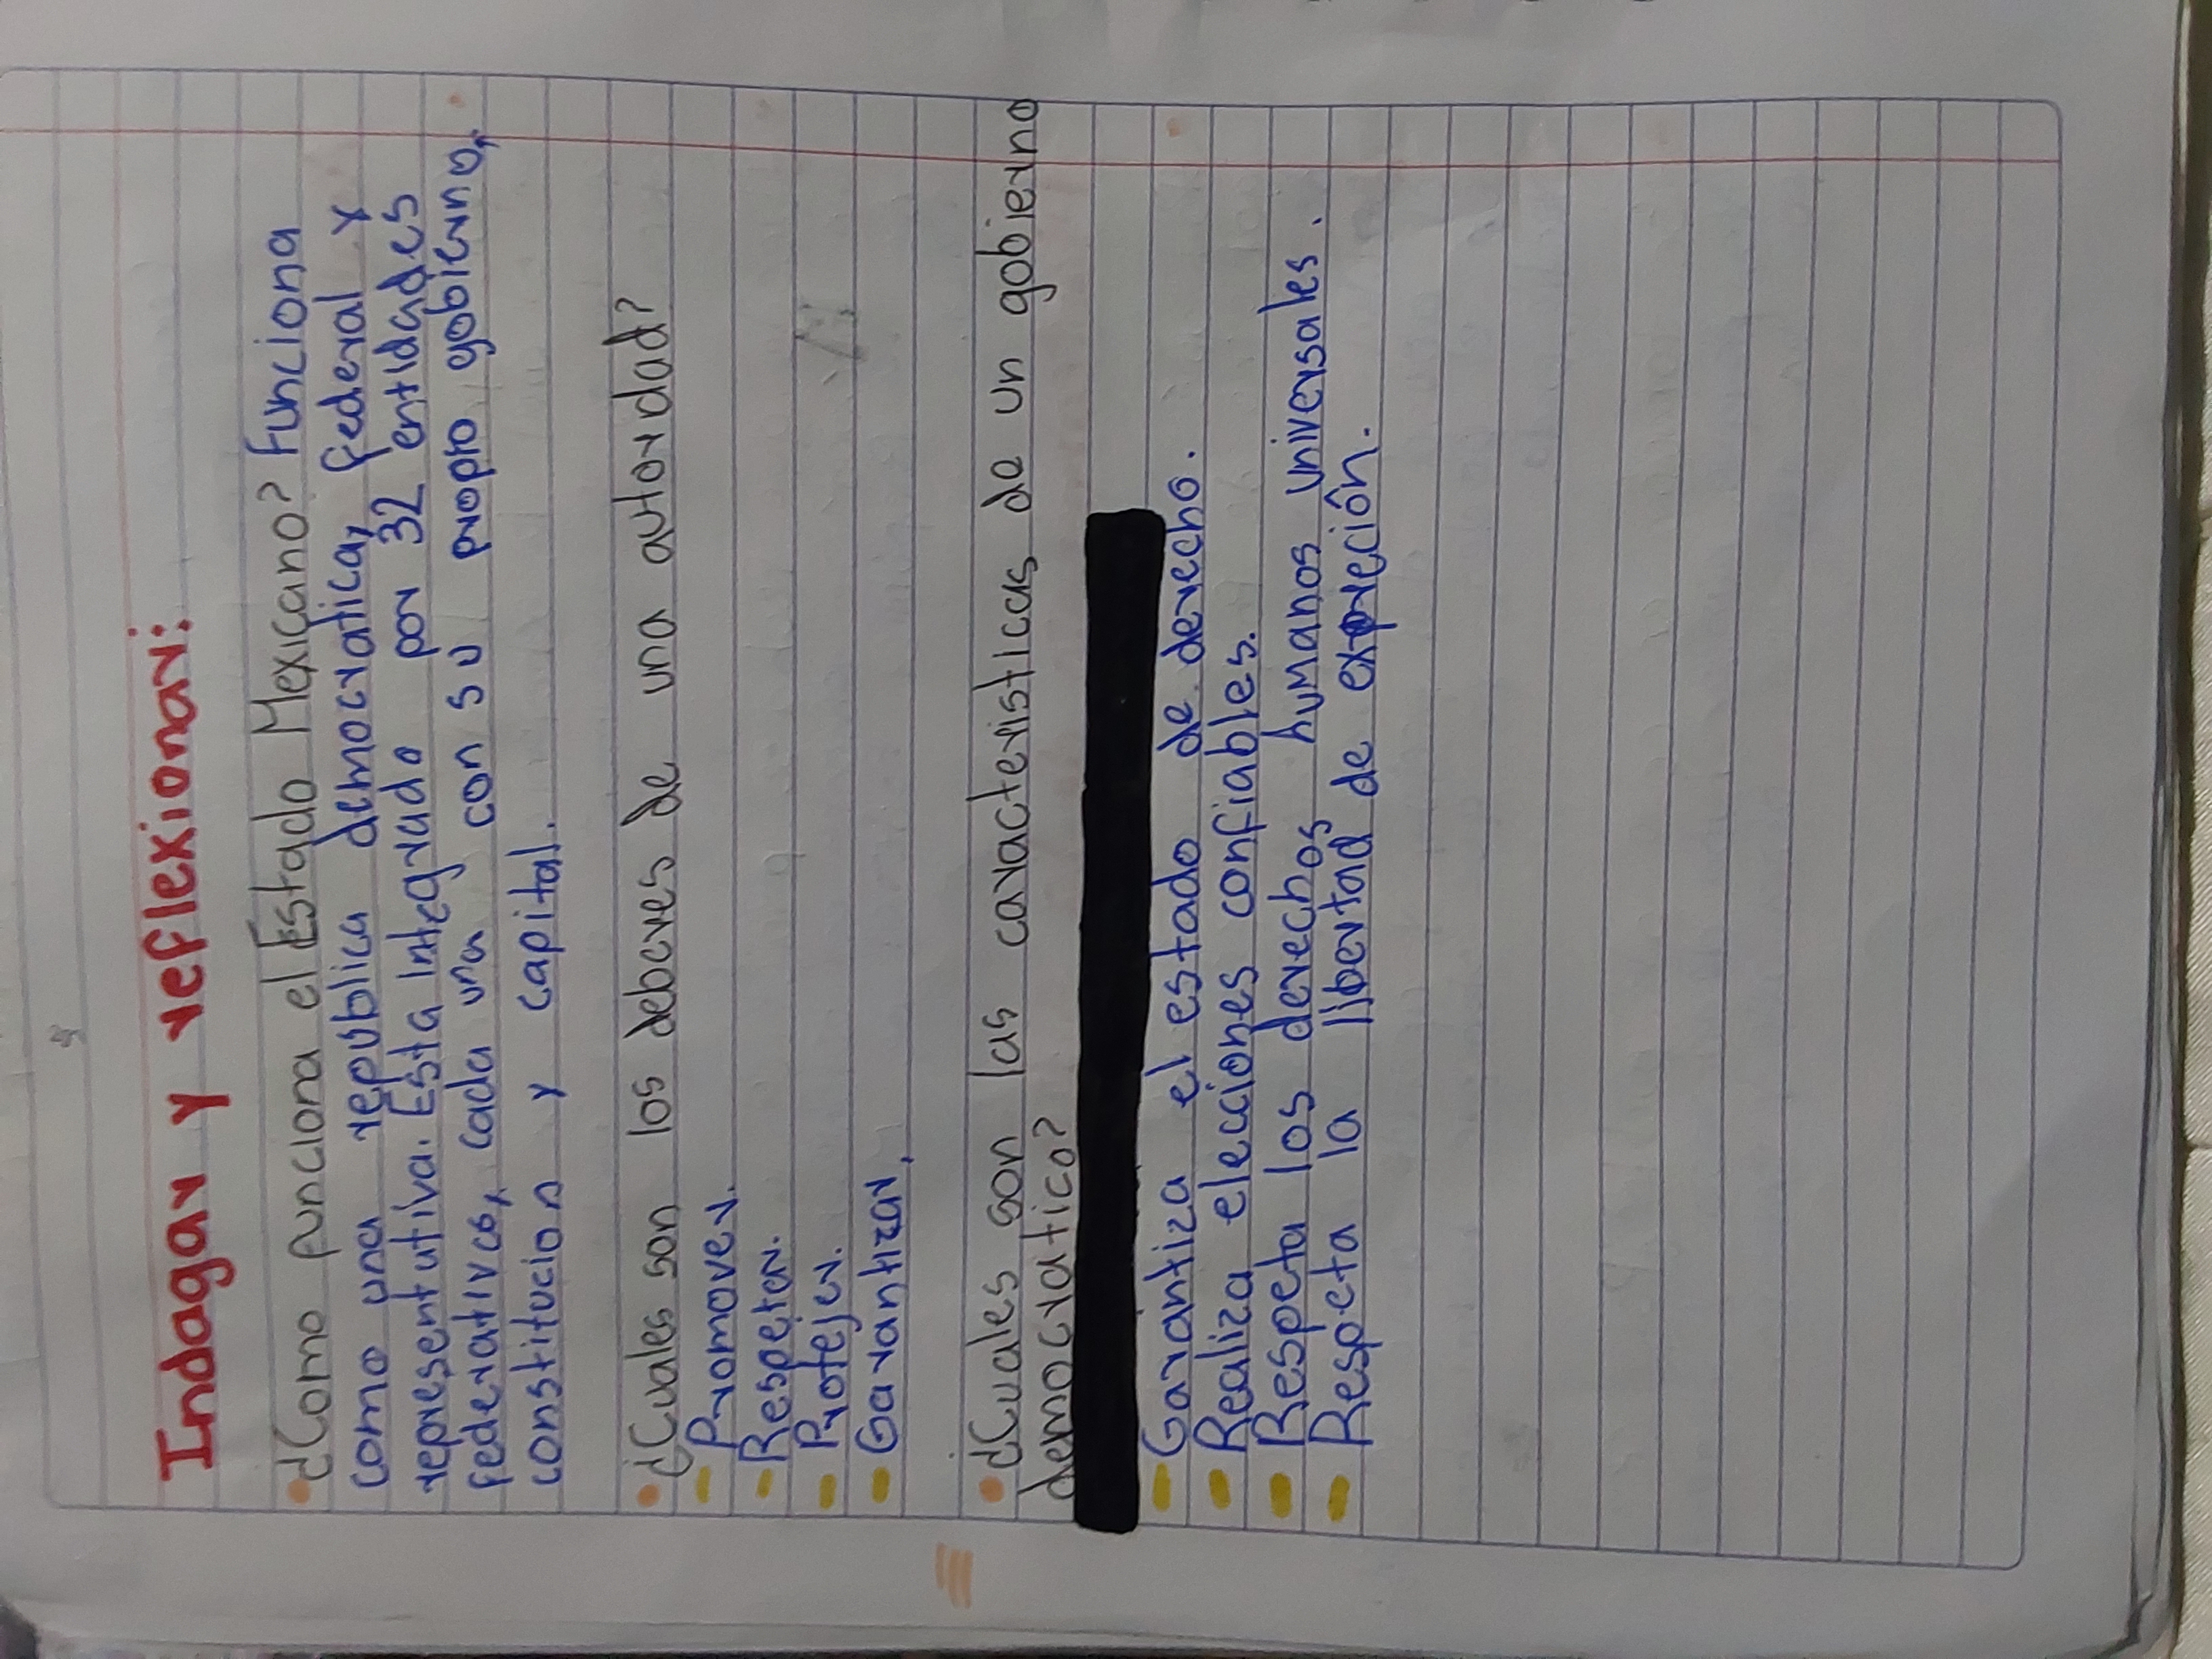 Indagar y reflexionar:
¿Como funciona el Estado Mexicano? Funciona
como una republica democratica, federal y
representativa. Esta integrado por 32 entidades
federativas, cada una con su propio gobierno,
constitucion y capital.
¿Cuales son los deberes de una autoridad?
- Promover.
- Respetar.
- Protejer.
- Garantizar.
¿Cuales son las caracteristicas de un gobierno
democratico?
- Garantiza el estado de derecho.
- Realiza elecciones confiables.
- Respeta los derechos humanos universales.
- Respeta la libertad de expreción.